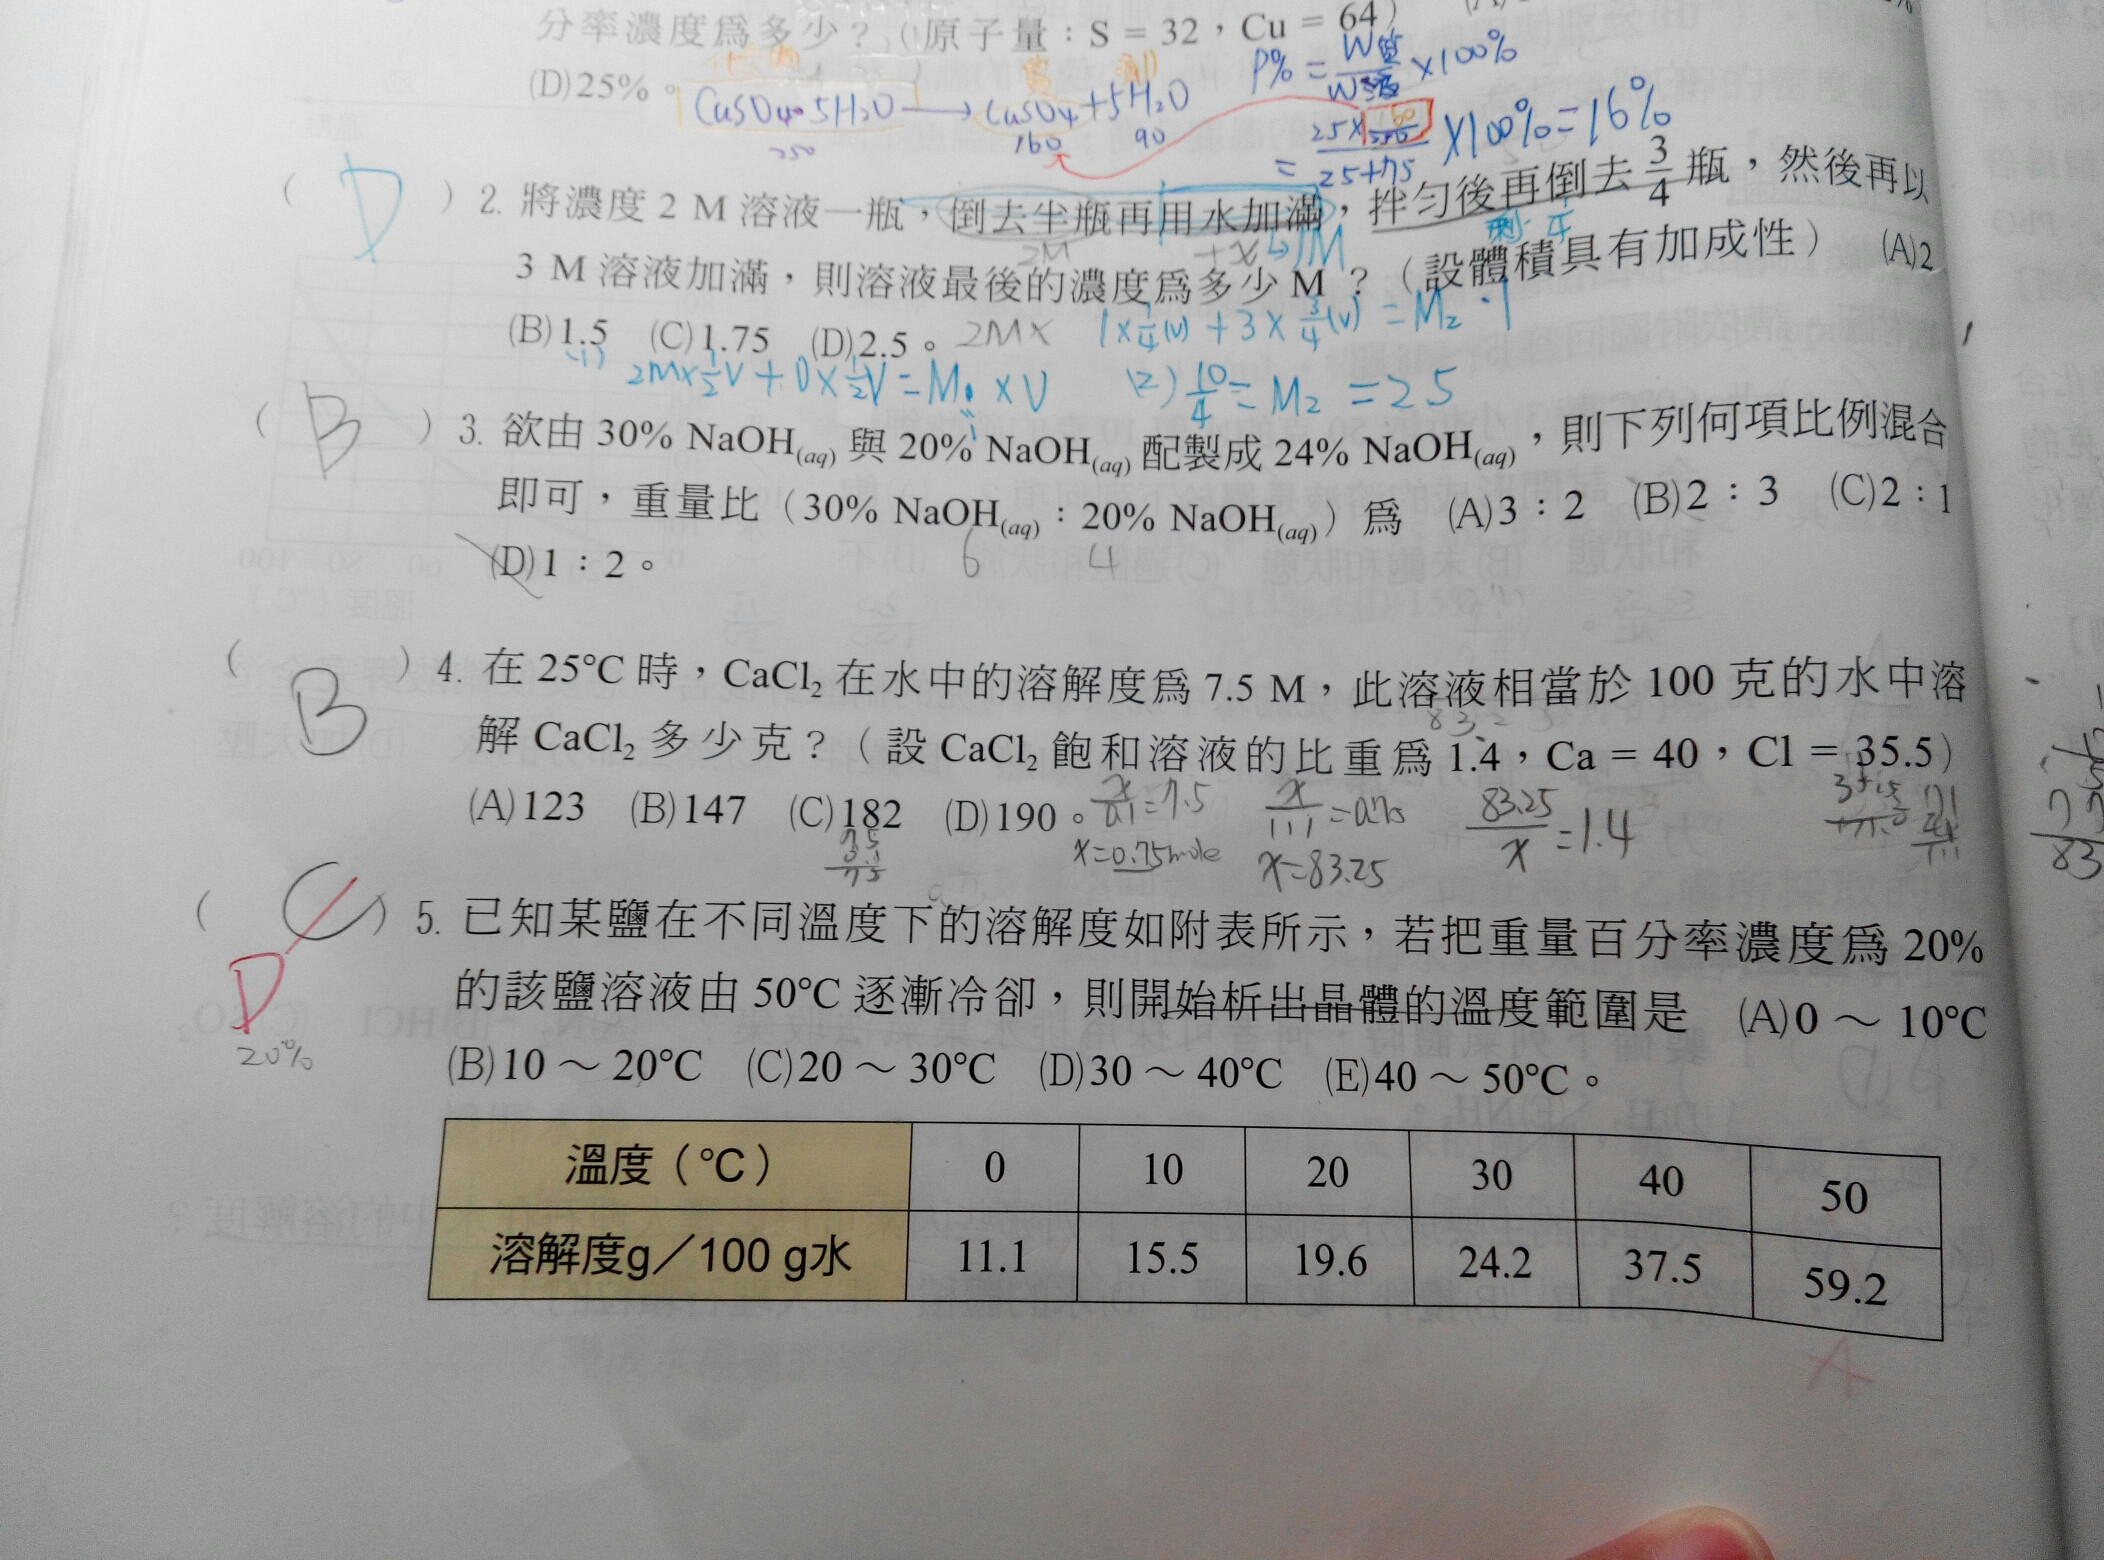 分率濃度爲多少？（原子量：S = 32，Cu = 64）
(D)25%。
P% = W質/W液 ×100%
CuSO4·5H2O → CuSO4 + 5H2O
250 160 90
= 25×160/250 / 25+75 ×100% = 16%
( D ) 2. 將濃度 2 M 溶液一瓶，倒去半瓶再用水加滿，拌勻後再倒去 3/4 瓶，然後再以
2M +x →1M 剩 1/4
3 M 溶液加滿，則溶液最後的濃度爲多少 M？（設體積具有加成性） (A)2
(B)1.5 (C)1.75 (D)2.5。 2MX 1×1/4(V) + 3×3/4(V) = M2·1
(1) 2M×1/2V + 0×1/2V = M1×V (2) 10/4 = M2 = 2.5
( B ) 3. 欲由 30% NaOH(aq) 與 20% NaOH(aq) 配製成 24% NaOH(aq)，則下列何項比例混合
即可，重量比（30% NaOH(aq)：20% NaOH(aq)）爲 (A)3：2 (B)2：3 (C)2：1
(D)1：2。 6 4
( B ) 4. 在 25°C 時，CaCl2 在水中的溶解度爲 7.5 M，此溶液相當於 100 克的水中溶
解 CaCl2 多少克？（設 CaCl2 飽和溶液的比重爲 1.4，Ca = 40，Cl = 35.5）
(A)123 (B)147 (C)182 (D)190。 x/0.1 = 7.5 x/111 = 0.75 83.25/x = 1.4
x=0.75mole x=83.25
( C ) 5. 已知某鹽在不同溫度下的溶解度如附表所示，若把重量百分率濃度爲 20%
D 的該鹽溶液由 50°C 逐漸冷卻，則開始析出晶體的溫度範圍是 (A)0 ～ 10°C
20%
(B)10 ～ 20°C (C)20 ～ 30°C (D)30 ～ 40°C (E)40 ～ 50°C。
溫度（°C） 0 10 20 30 40 50
溶解度g／100 g水 11.1 15.5 19.6 24.2 37.5 59.2